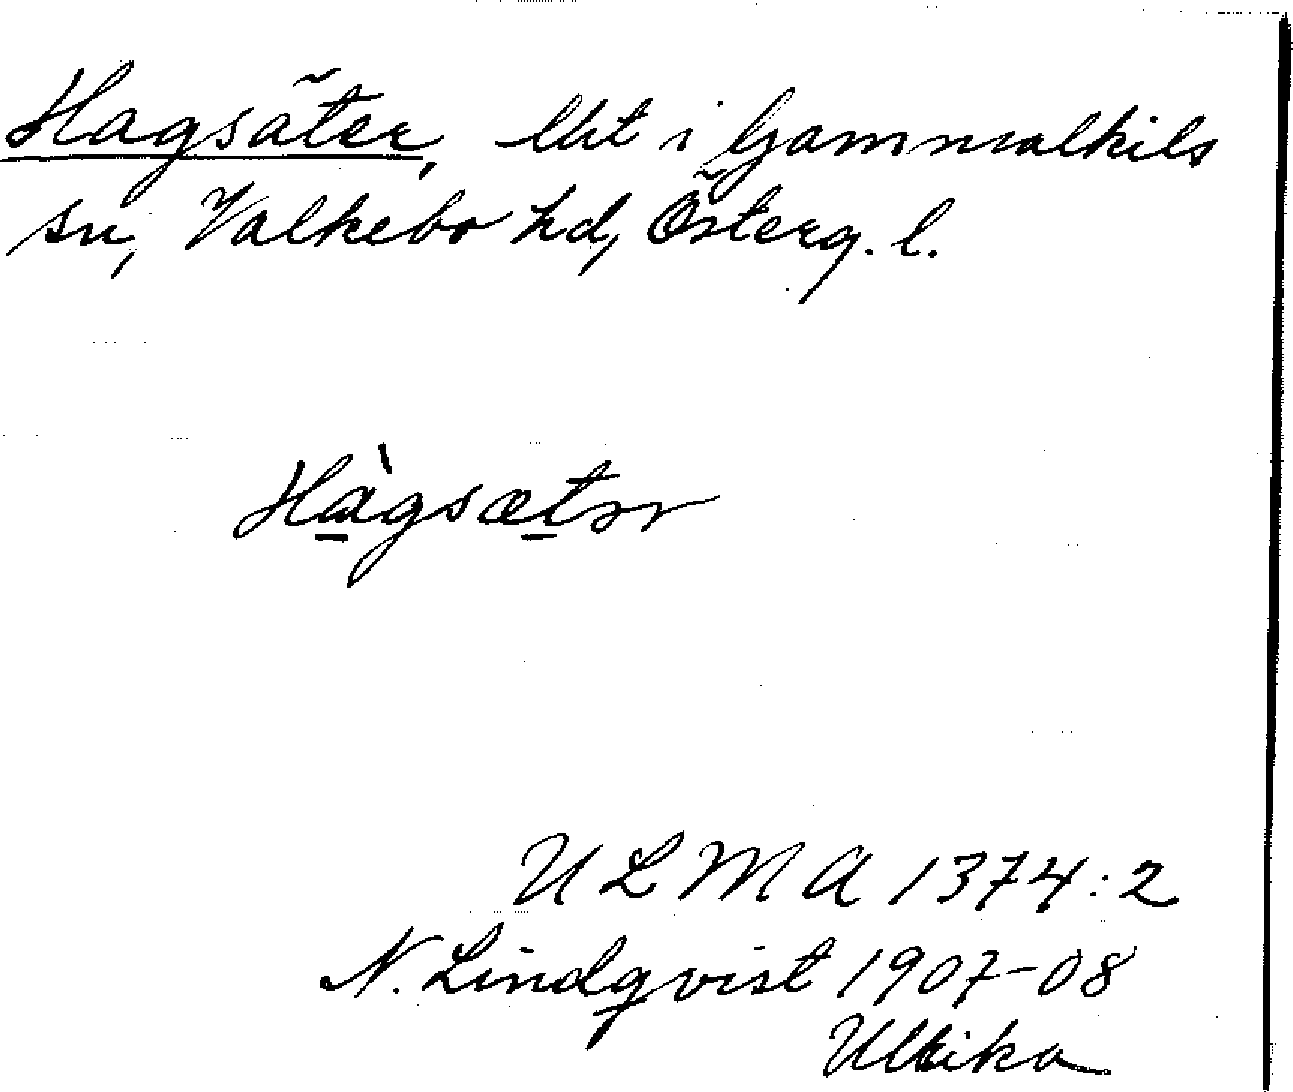 Hagsäter, i Gammalkils
sn, Valkebo hd, Österg. l.
Hàgsætər
ULMA 1374:2
N. Lindqvist 1907-08
Ulrika